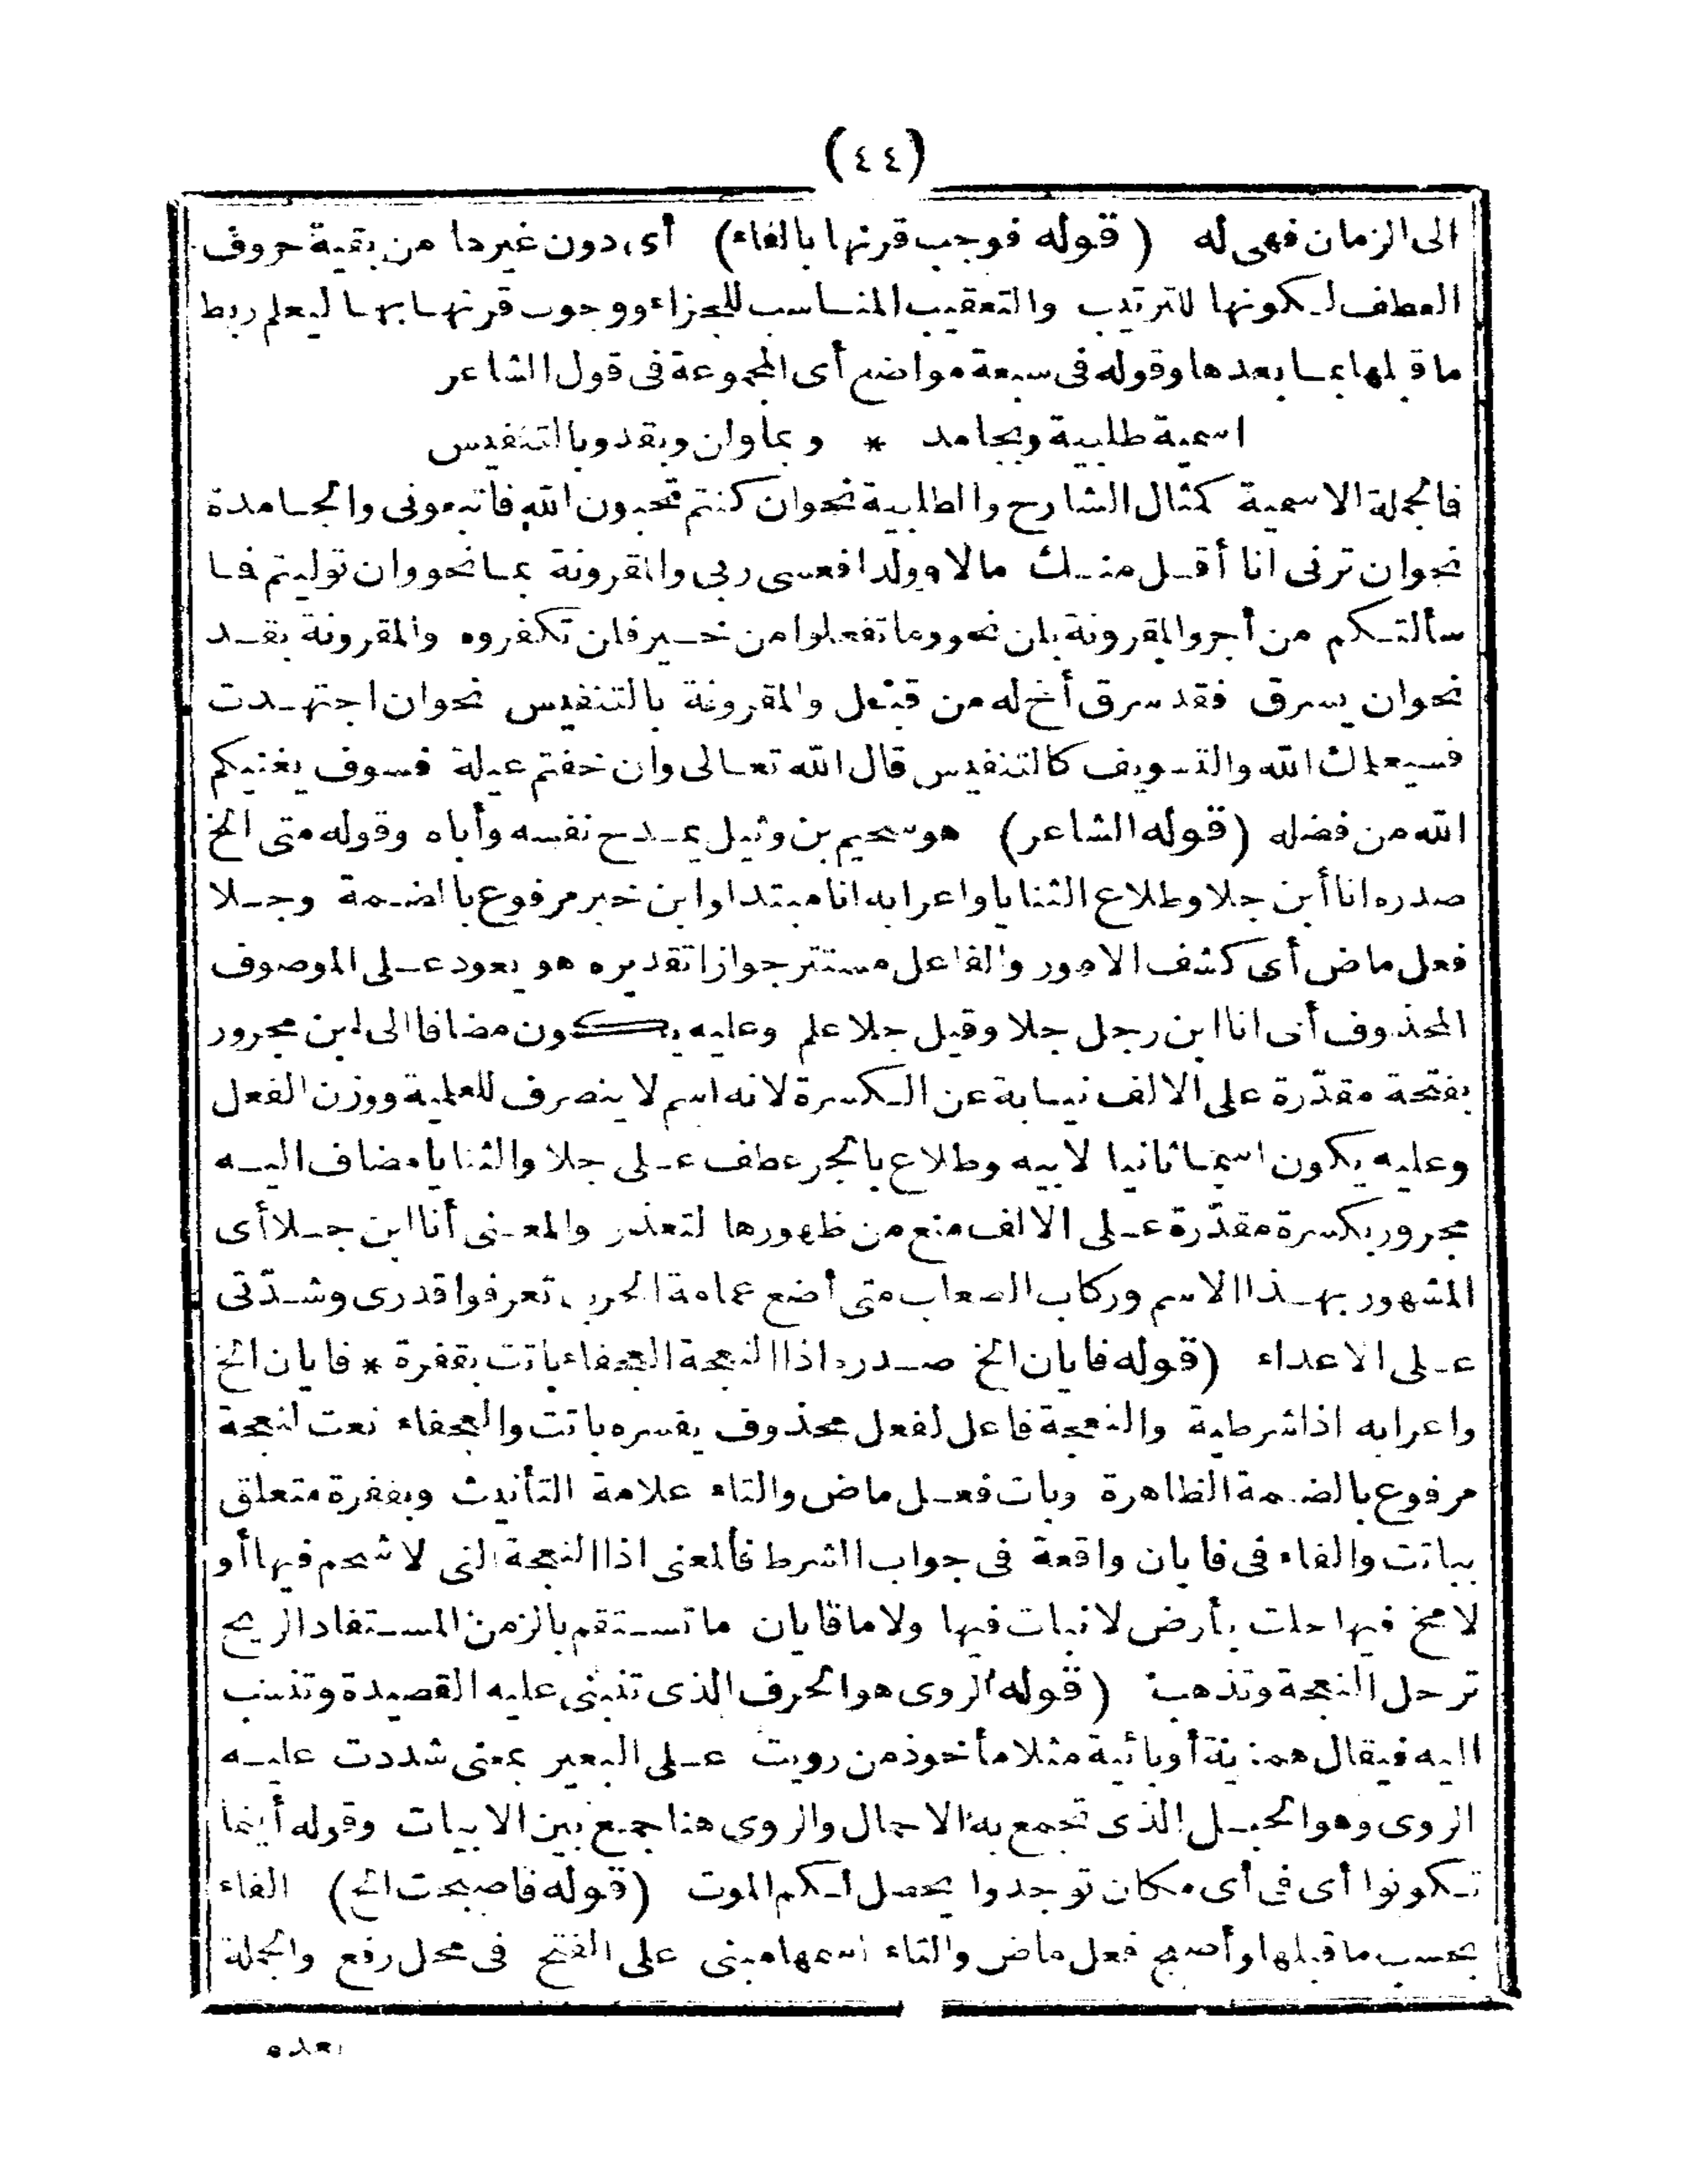 (٤٤)
الى الزمان فهى له (قوله فوجب قرنها بالفاء) أى دون غيرها من بقية حروف
العطف لكونها للترتيب والتعقيب المناسب للجزاء ووجوب قرنها بها ليعلم ربط
ما قبلها بما بعدها وقوله فى سبعة مواضع أى المجموعة فى قول الشاعر
اسمية طلبية وبجامد * وبما ولن وبقد وبالتنفيس
فالجملة الاسمية كمثال الشارح والطلبية نحو ان كنتم تحبون الله فاتبعونى والجامدة
نحو ان ترنى انا أقل منك مالا وولدا فعسى ربى والمقرونة بما نحو وان توليتم فما
سألتكم من أجر والمقرونة بلن نحو وما تفعلوا من خير فلن تكفروه والمقرونة بقد
نحو ان يسرق فقد سرق أخ له من قبل والمقرونة بالتنفيس نحو ان اجتهدت
فسيعلمك الله والتسويف كالتنفيس قال الله تعالى وان خفتم عيلة فسوف يغنيكم
الله من فضله (قوله الشاعر) هو سحيم بن وثيل يمدح نفسه وأباه وقوله متى الخ
صدره انا أبن جلا وطلاع الثنايا واعرابه انا مبتدا وابن خبر مرفوع بالضمة وجلا
فعل ماض أى كشف الامور والفاعل مستتر جوازا تقديره هو يعود على الموصوف
المحذوف أى انا ابن رجل جلا وقيل جلا علم وعليه يكون مضافا الى ابن مجرور
بفتحة مقدّرة على الالف نيابة عن الكسرة لانه اسم لا ينصرف للعلمية ووزن الفعل
وعليه يكون اسما ثانيا لابيه وطلاع بالجر عطف على جلا والثنايا مضاف اليه
مجرور بكسرة مقدّرة على الالف منع من ظهورها لتعذر والمعنى أنا ابن جلا أى
المشهور بهذا الاسم وركاب الصعاب متى أضع عمامة الحرب تعرفوا قدرى وشدّتى
على الاعداء (قوله فايان الخ صدره اذا النعجة العجفاء باتت بقفرة * فايان الخ
واعرابه اذا شرطية والنعجة فاعل لفعل محذوف يفسره باتت والعجفاء نعت لنعجة
مرفوع بالضمة الظاهرة وبات فعل ماض والتاء علامة التأنيث وبقفرة متعلق
بباتت والفاء فى فايان واقعة فى جواب الشرط فالمعنى اذا النعجة التى لا شحم فيها أو
لا مخ فيها حلت بأرض لا نبات فيها ولا ما فايان ما تستقم بالزمن المستفاد الريح
ترحل النعجة وتذهب (قوله الروى هو الحرف الذى تنبنى عليه القصيدة وتنسب
اليه فيقال همزية أو بائية مثلا مأخوذ من رويت على البعير بمعنى شددت عليه
الروى وهو الحبل الذى تجمع به الاحمال والروى هنا جمع بين الابيات وقوله أينما
تكونوا أى فى أى مكان توجدوا يحصل لكم الموت (قوله فاصبحت الخ) الفاء
بحسب ما قبلها وأصبح فعل ماض والتاء اسمها مبنى على الفتح فى محل رفع والجملة
بعده